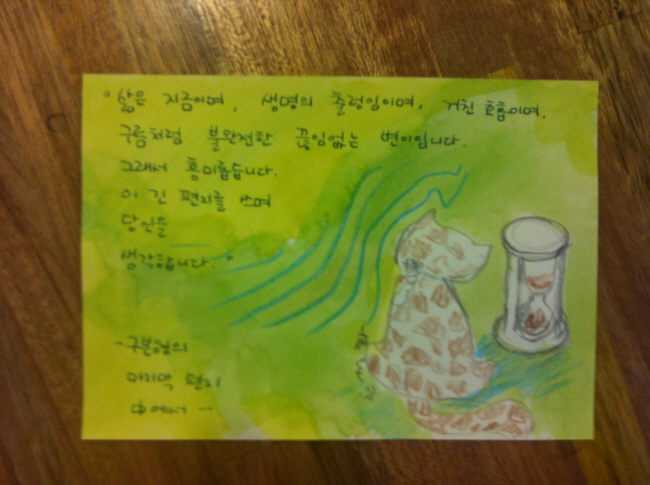 "삶은 지금이며, 생명의 출렁임이며, 거친 호흡이며.
구름처럼 불완전한 끊임없는 변이입니다.
그래서 흥미롭습니다.
이 긴 편지를 쓰며
당신을
생각했습니다."
- 구본형의
마지막 편지
中에서 -